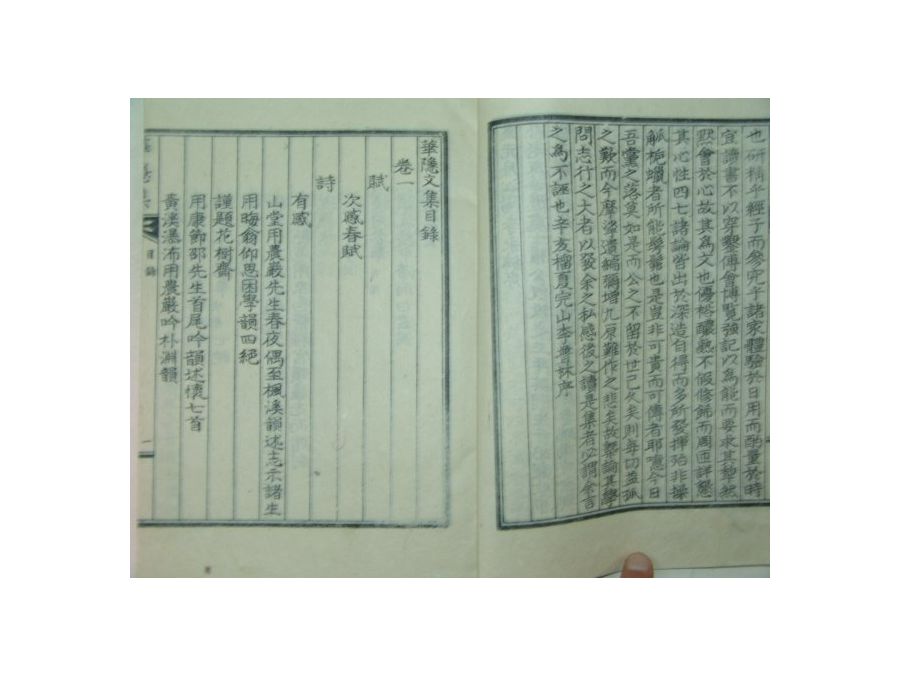 也研精乎經子而參究乎諸家體驗於日用而酌量於時
宜讀書不以穿鑿傅會博覽強記以爲能而要求其犁然
默會於心故其爲文也優裕醲熟不假修飾而周匝詳懇
其心性四七諸論皆出於深造自得而多所發揮殆非操
觚梔蠟者所能學髴也是豈非可貴而可傳者耶噫今日
吾黨之落莫如是而公之不留於世已久矣則每切益孤
之歎而今摩挲遺編彌增九原難作之悲矣故槩論其學
問志行之大者以發余之私感後之讀是集者必謂余言
之爲不誣也辛亥榴夏完山李
序
華隱文集目錄
卷一
賦
次感春賦
詩
有感
山堂用農巖先生春夜偶至楓溪韻述志示諸生
用晦翁仰思困學韻四絶
謹題花樹齋
用康節邵先生首尾吟韻述懷七首
黃溪瀑布用農巖吟朴淵韻
目錄
一